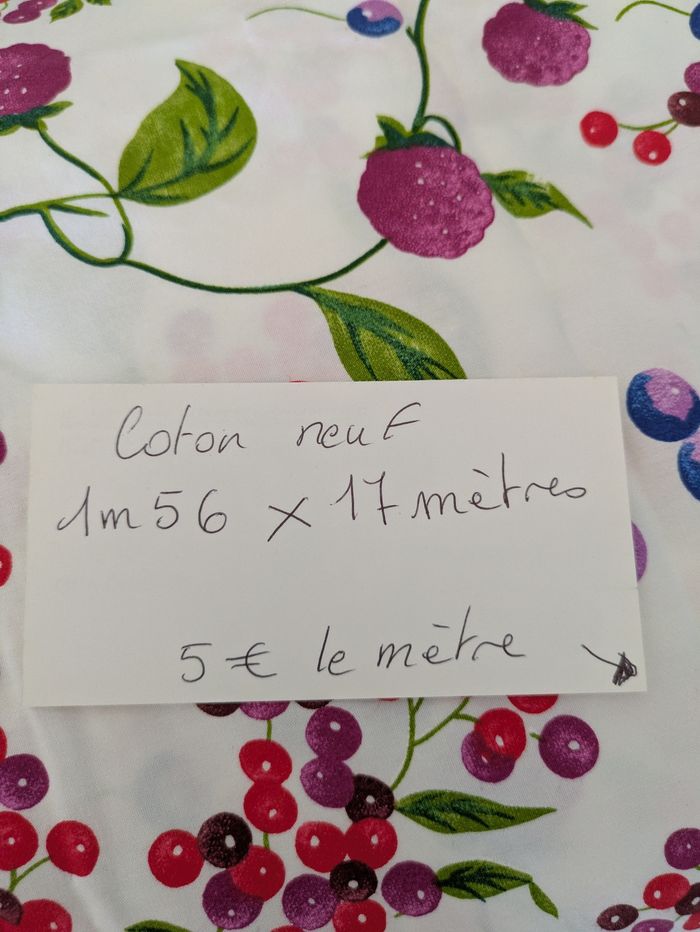 Coton neuf
1m56 x 17 mètres
5€ le mètre